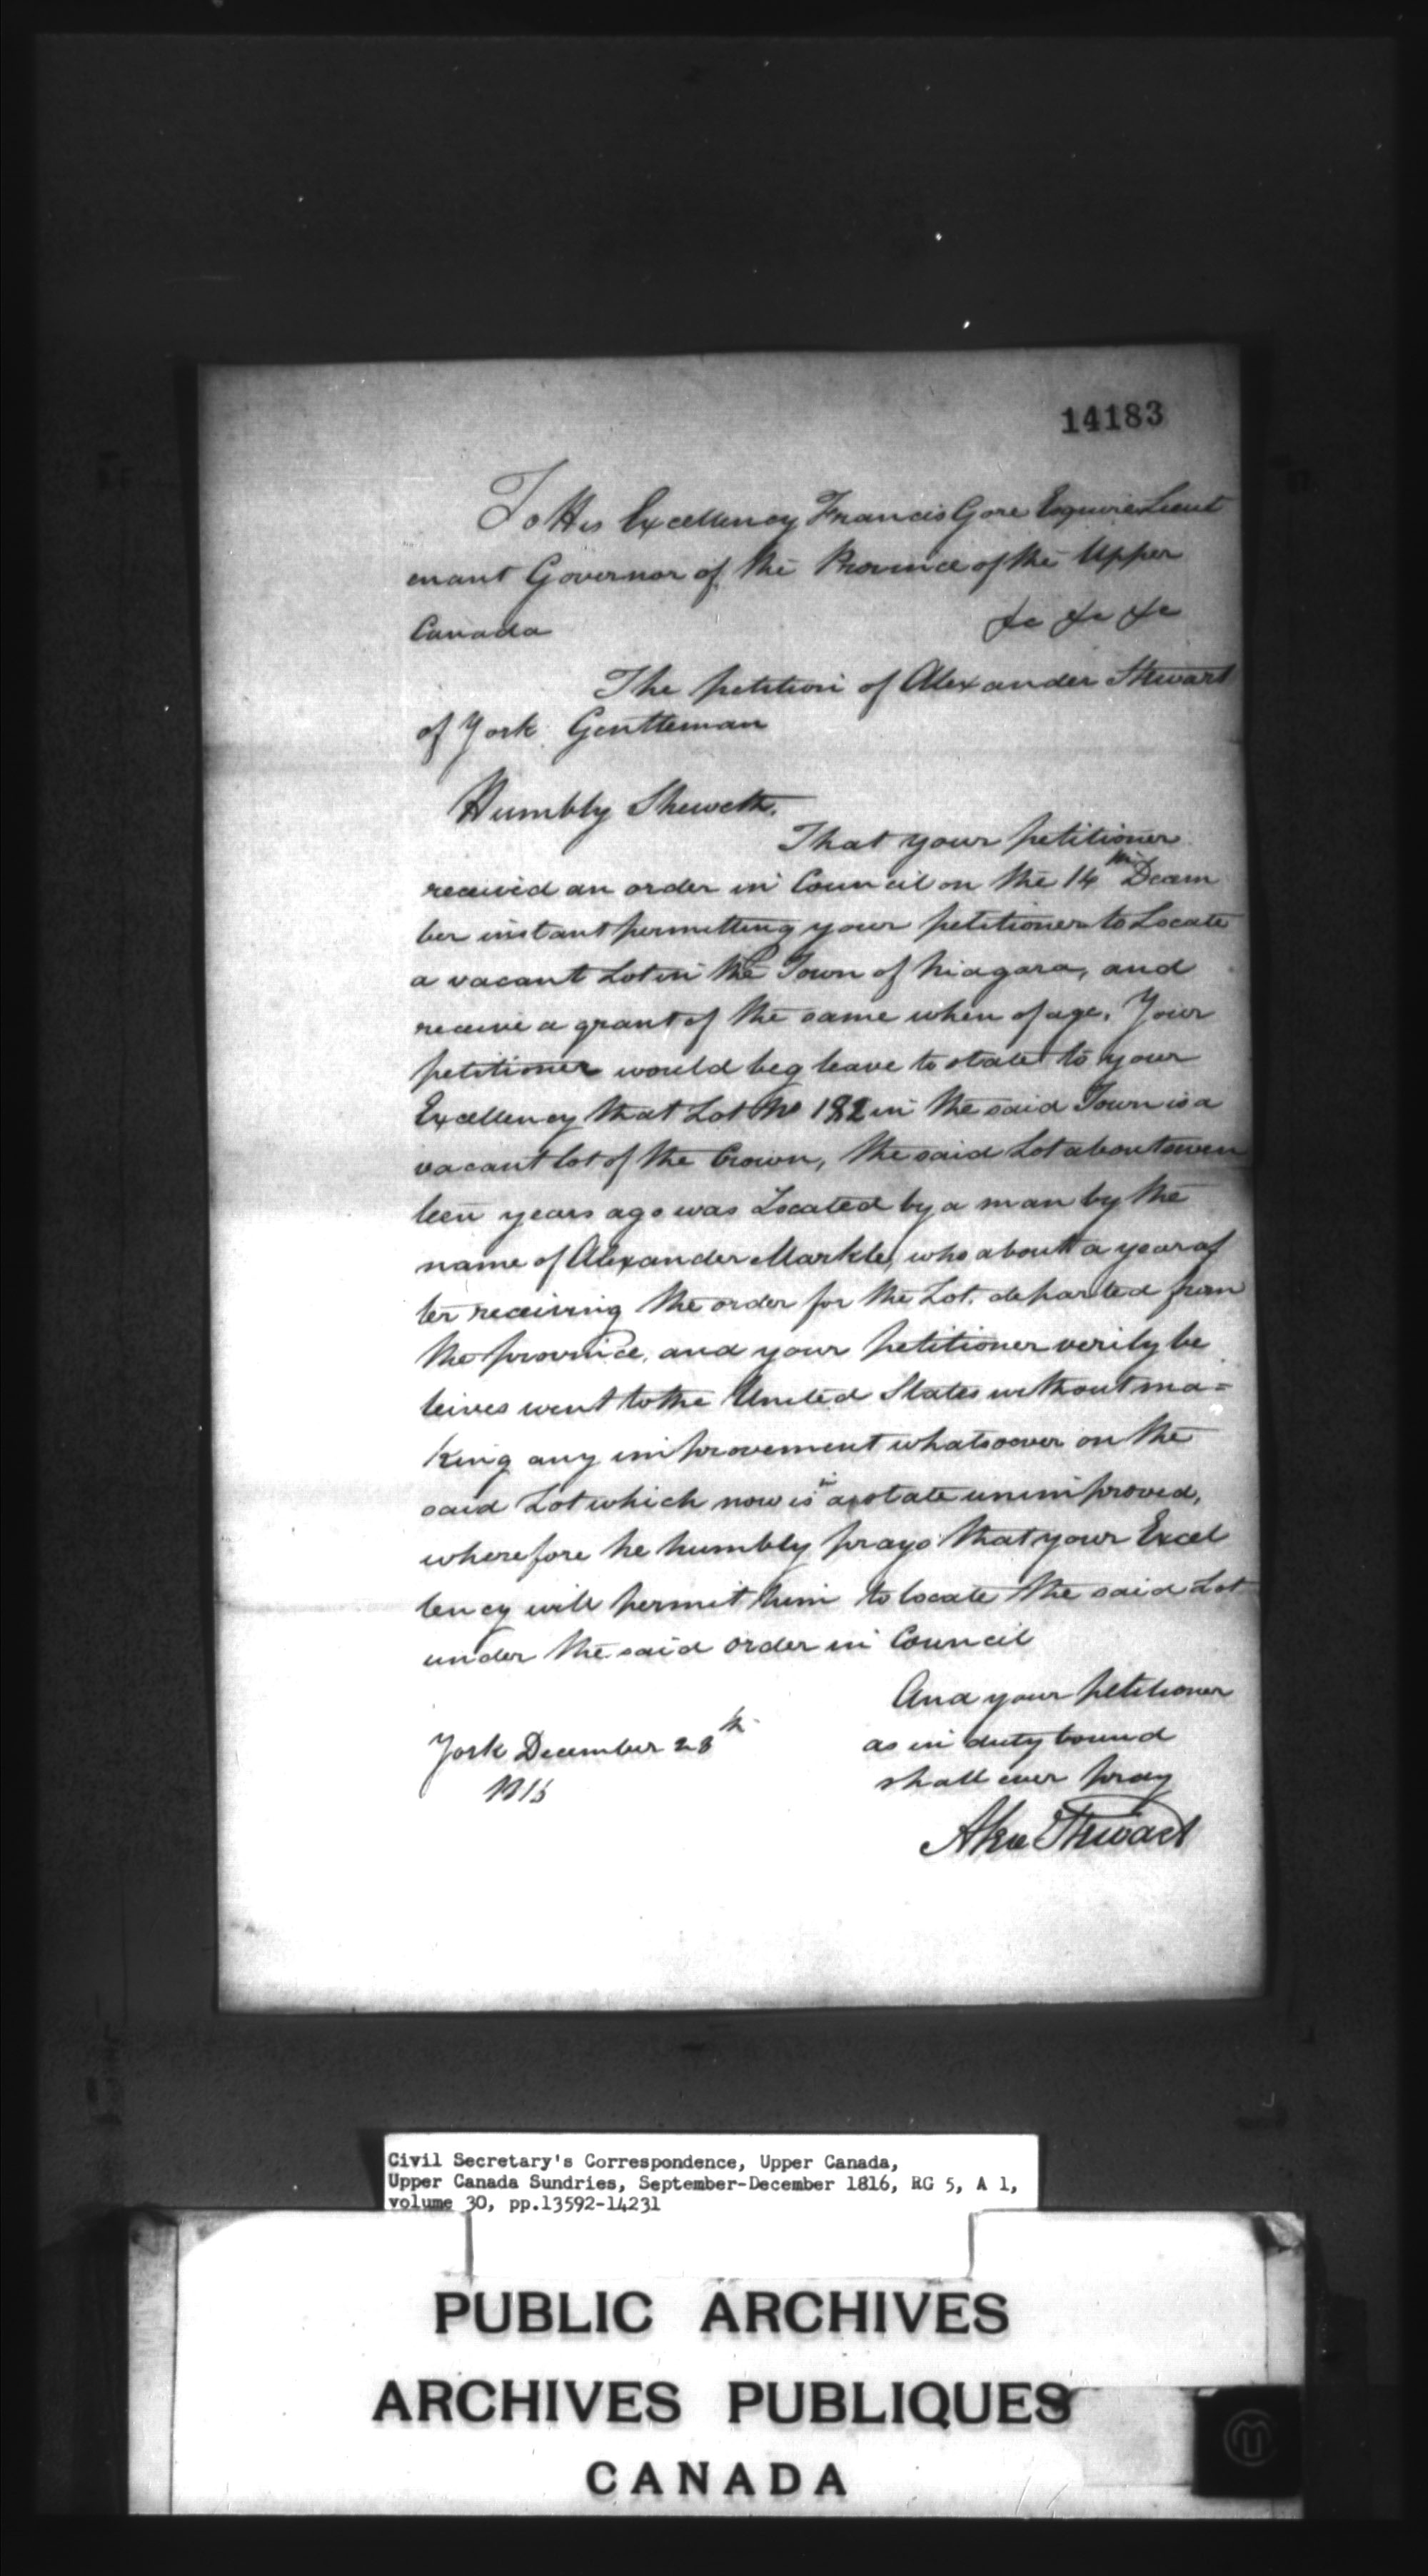 14183
To His Excellency Francis Gore Esquire Lieut
enant Governor of the Province of the Upper
Canada &c &c &c
The petition of Alexander Stewart
of York Gentleman
Humbly Sheweth.
That your petitioner
received an order in Council on the 14th Decem
ber instant permitting your petitioner to Locate
a vacant Lot in the Town of Niagara, and
receive a grant of the same when of age. Your
petitioner would beg leave to state to your
Excellency that Lot No 182 in the said Town is a
vacant lot of the Crown, the said Lot about seven
teen years ago was Located by a man by the
name of Alexander Markle, who about a year af
ter receiving the order for the Lot, departed from
the province, and your petitioner verily be
leives went to the United States without ma=
king any improvement whatsoever on the
said Lot which now is in a state unimproved,
wherefore he humbly prays that your Excel
lency will permit him to locate the said Lot
under the said order in Council
And your petitioner
as in duty bound
shall ever pray
York December 28th
1816
Alex Stewart
Civil Secretary's Correspondence, Upper Canada,
Upper Canada Sundries, September-December 1816, RG 5, A 1,
volume 30, pp.13592-14231
PUBLIC ARCHIVES
ARCHIVES PUBLIQUES
CANADA